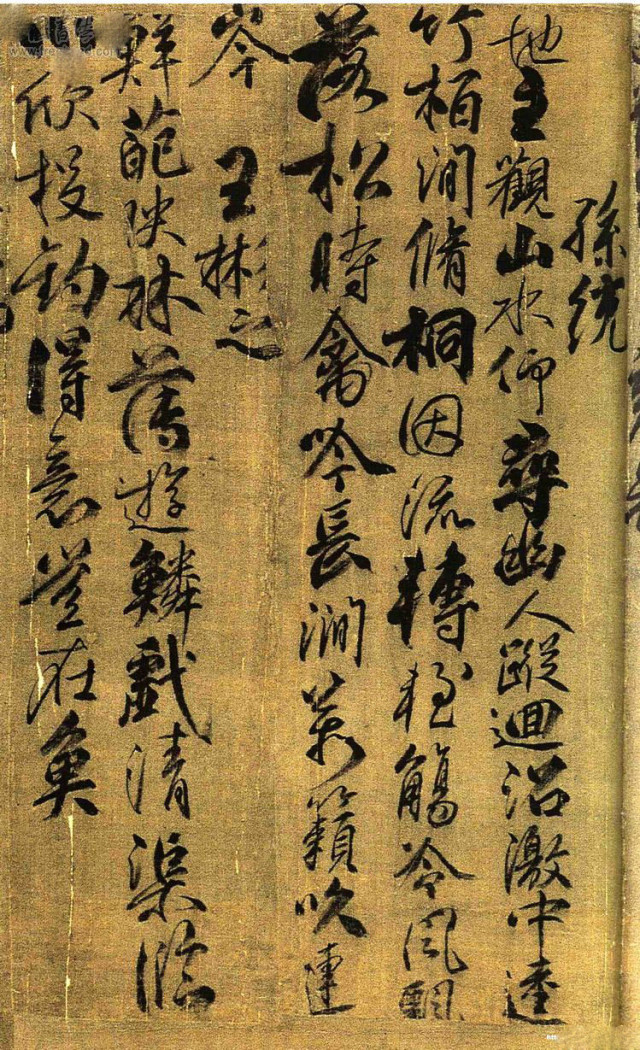 孫統
地主觀山水仰尋幽人蹤迴沼激中逵
竹柏間脩桐因流轉輕觴冷風飄
落松時禽吟長澗萬籟吹連
岑
王彬之
鮮葩映林薄遊鱗戲清渠臨
欣投釣得意豈在魚